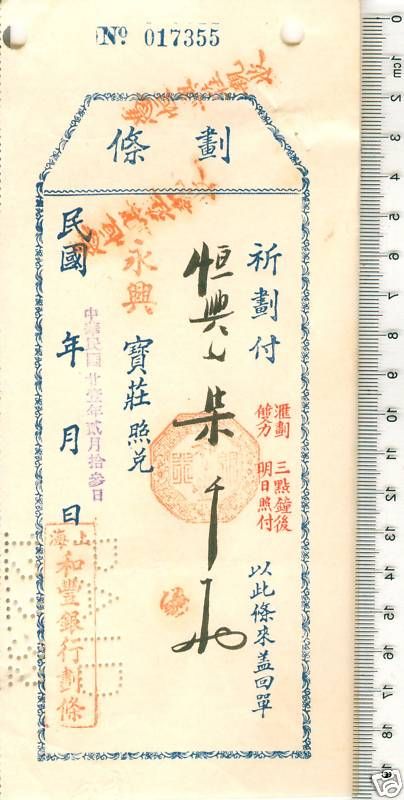 № 017355
劃條
祈劃付
匯劃 三點鐘後
明日照付
以此條來蓋回單
恒興
柒千
永興 寶莊 照兌
民國 年 月 日
中華民國廿壹年貳月拾參日
上海
和豐銀行劃條
0 1cm 2 3 4 5 6 7 8 9 10 11 12 13 14 15 16 17 18 19